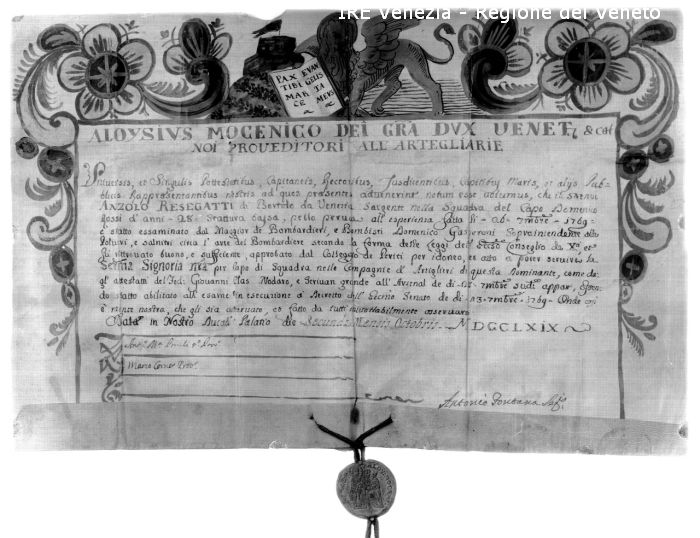 IRE Venezia - Regione del Veneto
PAX EVAN
TIBI GELIS
MAR TA
CE MEVS
ALOYSIVS MOCENICO DEI GRÂ DVX VENET, & cet
NOI PROVEDITORI ALL' ARTEGLIARIE
et Singulis Pottestatibus, Capitaneis, Rectoribus, Jusdicentibus, Capitibus Maris, et alijs Pub-
blicis Rappresentantibus nostris ad quos præsentes advenerint notum esse volumus, che il
ANZOLO RESEGATTI di Bortolo da Venezia Sargente nella Squadra del Capo Domenico
Rossi d'anni - 28 - Stattura bassa, pello all' esperienza fatta li - 26 - 7mbre - 1769 -
è stato essaminato dal Maggior de Bombardieri, e Bombisti Domenico Gasperoni Sopraintendente alle
Polveri, e salnitri circa l' arte del Bombardiere secondo la forma delle Leggi dell' Conseglio de X.
ritrovato buono, e sufficiente, approbato dal Colleggio de Periti per idoneo, et atto a poter servire la
Serma Signoria nra per Capo di Squadra nelle Compagnie d' Artiglieri di questa Dominante, come da
gli attestati del Giovanni Nodaro, e Scrivan grande all' Arsenal de di 7mbre appar,
do stato abilitato all' esame in esecuzione à Decreto dell' Senato de di 7mbre - 1769 - Onde
è mente nostra, che gli sia attrovato, et fatto da tutti inviolabilmente osservare
Dat. in Nostro Ducali Palatio die Secunda Mensis Octobris MDCCLXIX
Ant.
Marco Corner Prov.
Antonio Fontana